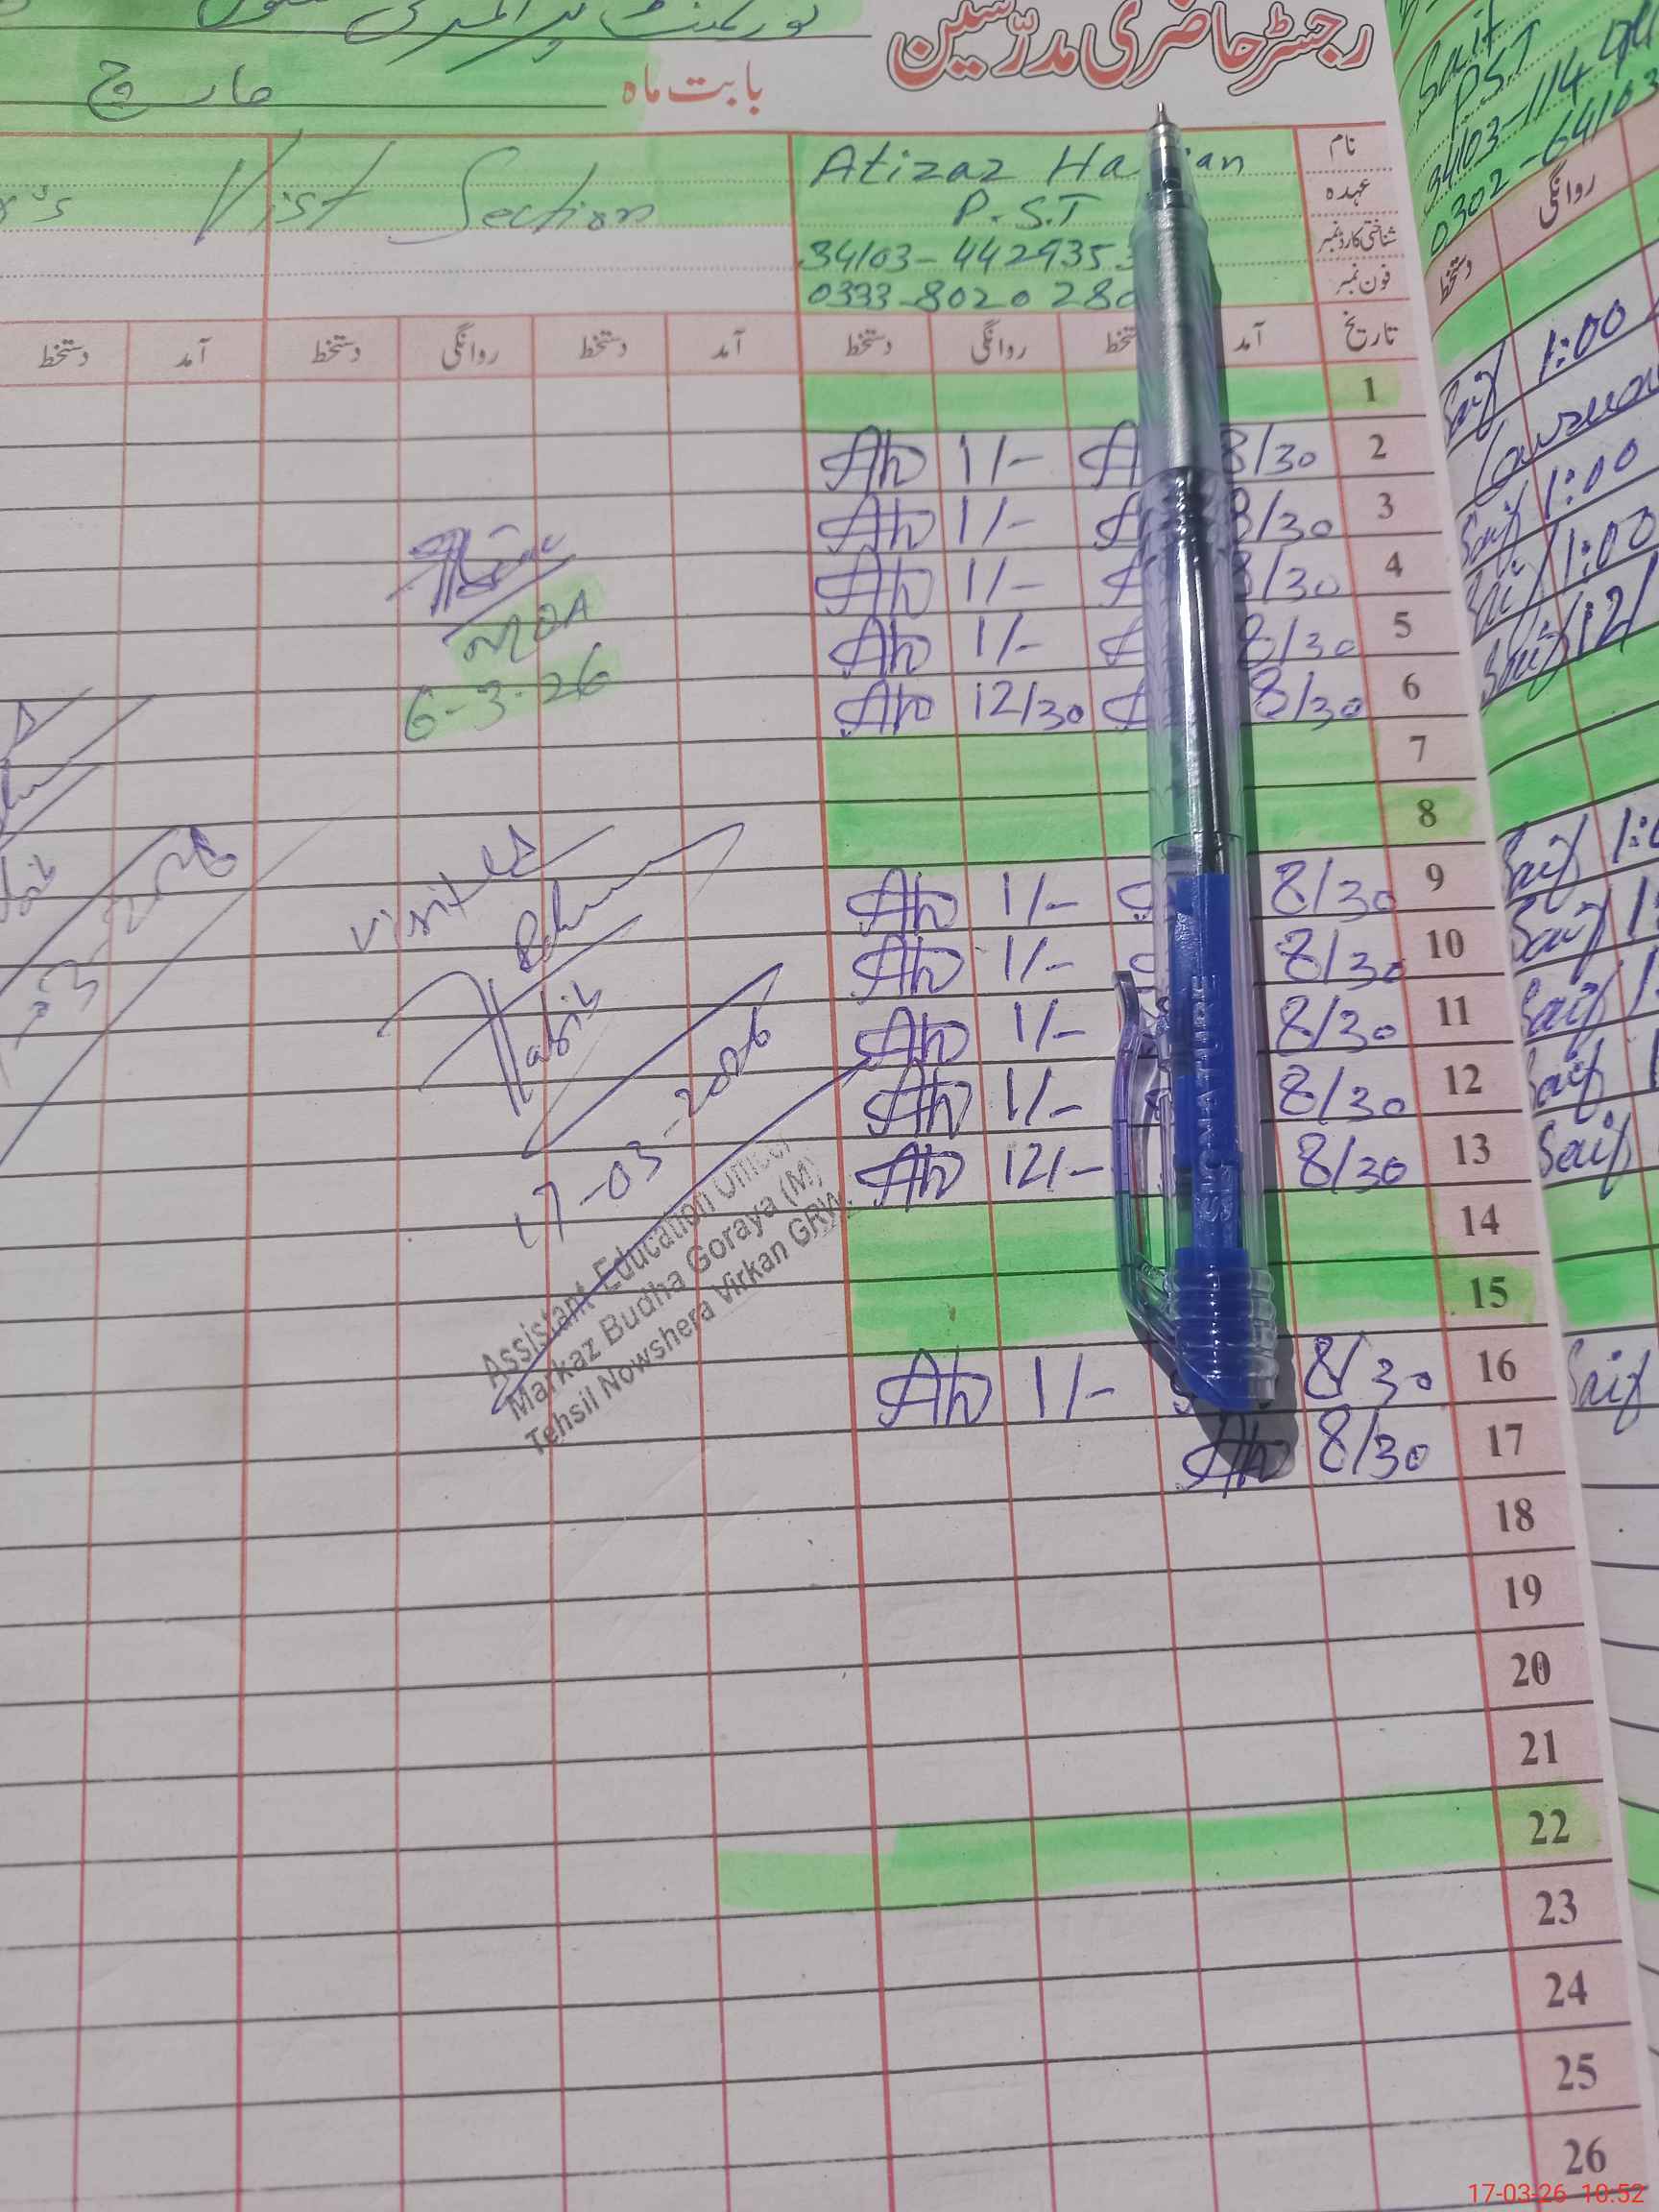 رجسٹر حاضری مدرّسین
بابت ماہ مارچ
نام
Atizaz Ha
عہدہ
P.S.T
شناختی کارڈ نمبر
34103-4429353
فون نمبر
0333-8020280
Visit Section
تاریخ آمد دستخط روانگی دستخط آمد دستخط روانگی دستخط آمد دستخط
1
2 8/30 1/- Ah
3 8/30 1/- Ah
4 8/30 1/- Ah
5 8/30 1/- Ah
6 8/30 12/30 Ah
7
8
9 8/30 1/- Ah
10 8/30 1/- Ah
11 8/30 1/- Ah
12 8/30 1/- Ah
13 8/30 12/- Ah
14
15
16 8/30 1/- Ah
17 8/30 Ah
18
19
20
21
22
23
24
25
26
MEA
6-3-26
visited
Habib
17-03-2026
Assistant Education Officer
Markaz Budha Goraya (M)
Tehsil Nowshera Virkan GRW.
SIGNATURE
Saif
PST
34103-114
0302-64103
روانگی
دستخط
Saif 1:00
Saif 1:00
Saif 1:00
Saif 12/
Saif
Saif
Saif
Saif
Saif
Saif
17-03-26 10:52